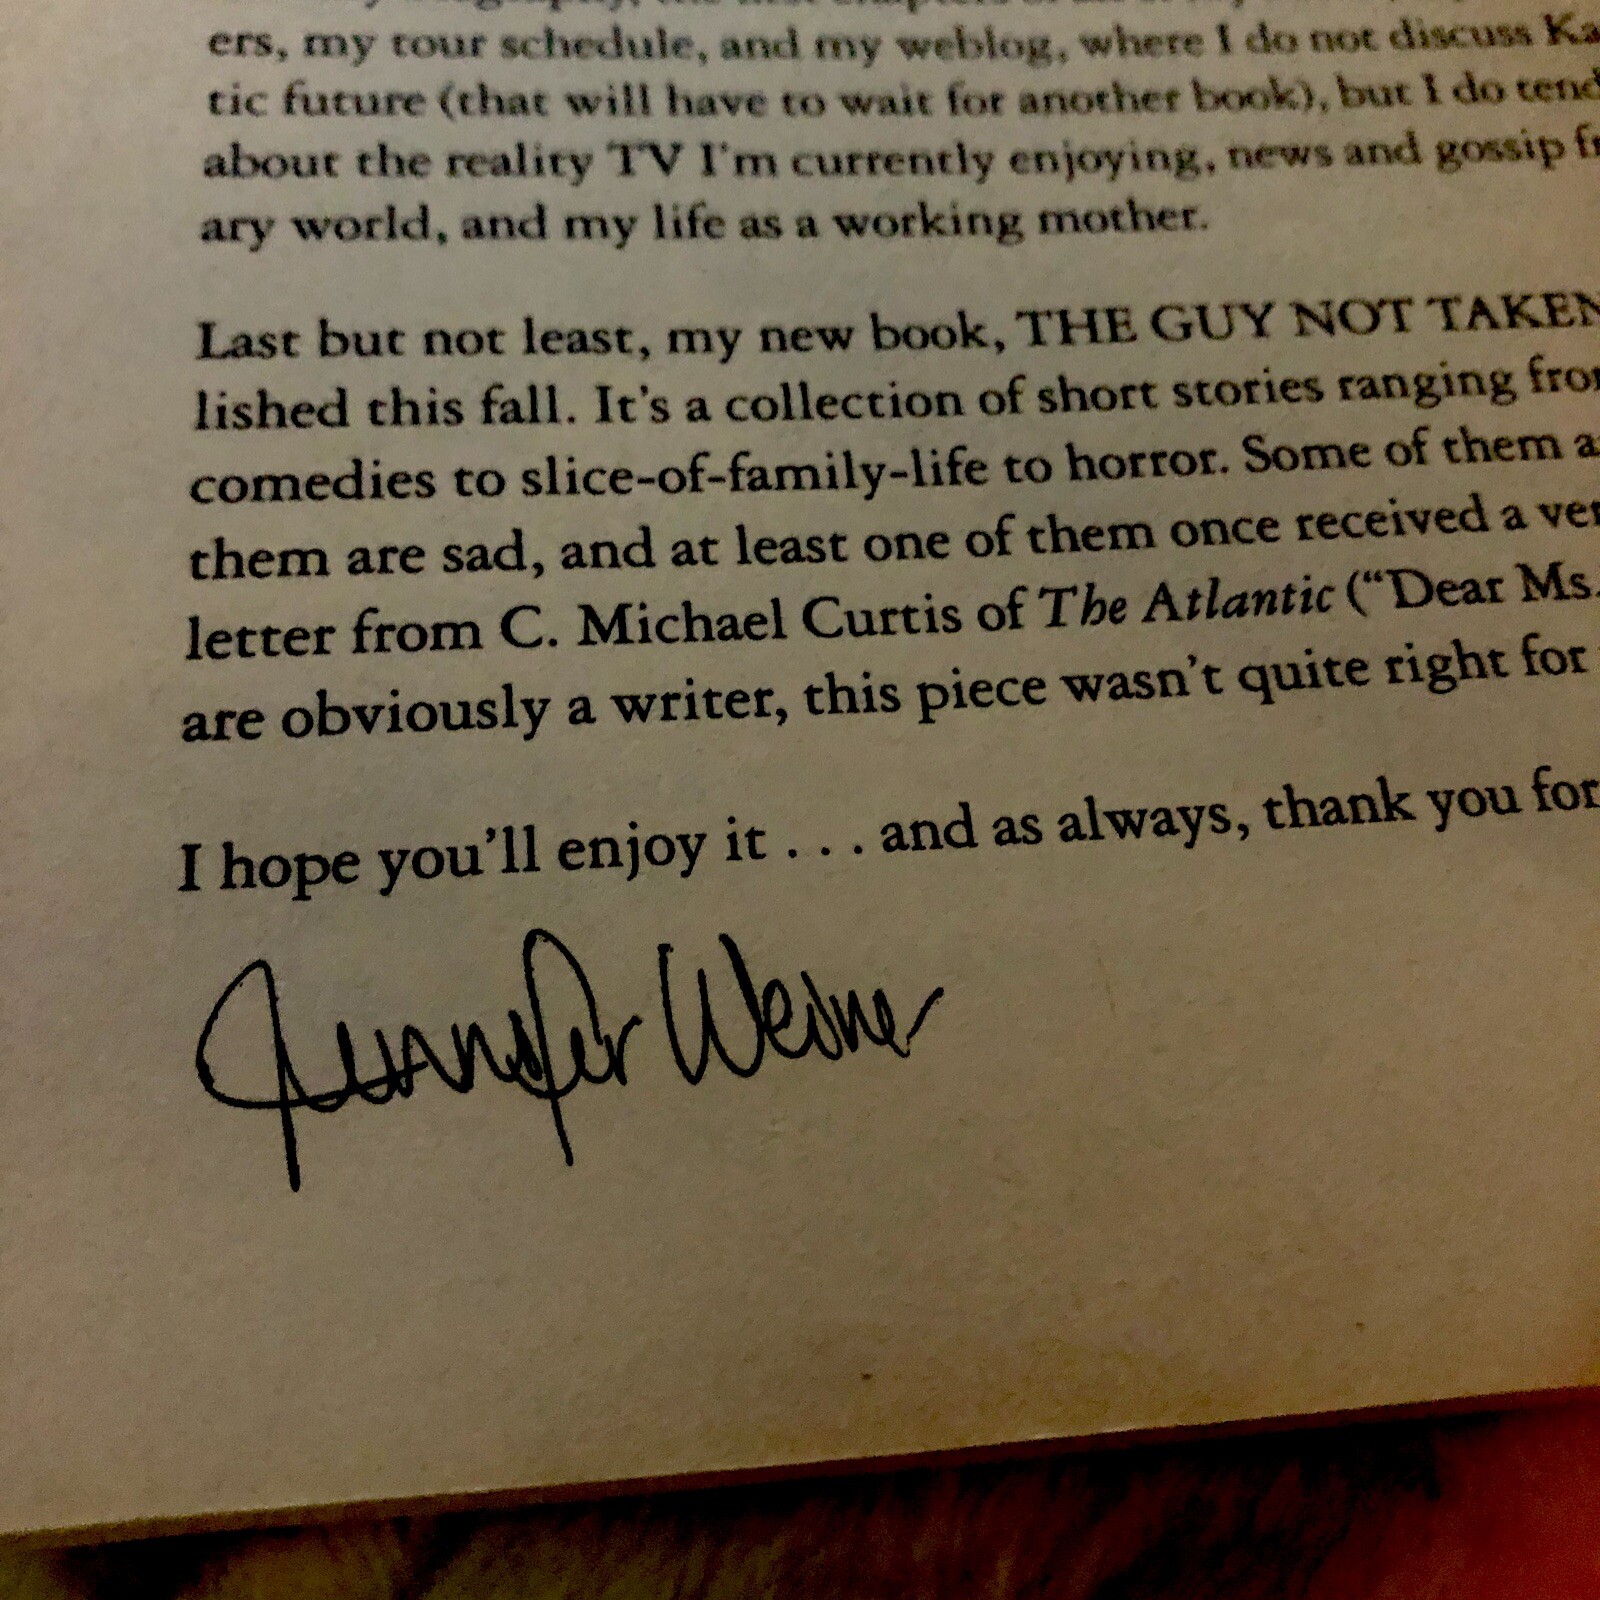 ers, my tour schedule, and my weblog, where I do not discuss Ka
tic future (that will have to wait for another book), but I do tend
about the reality TV I'm currently enjoying, news and gossip fr
ary world, and my life as a working mother.
Last but not least, my new book, THE GUY NOT TAKEN
lished this fall. It's a collection of short stories ranging from
comedies to slice-of-family-life to horror. Some of them a
them are sad, and at least one of them once received a ver
letter from C. Michael Curtis of The Atlantic (“Dear Ms.
are obviously a writer, this piece wasn't quite right for
I hope you'll enjoy it . . . and as always, thank you for
Jennifer Weiner